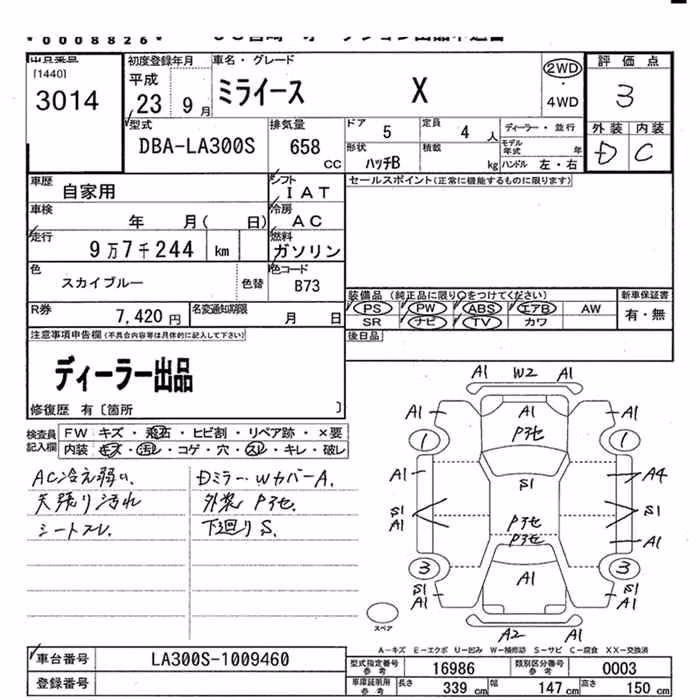 0008826
[1440]
3014
初度登録年月
平成
23 9月
車名・グレード
ミライース X
2WD
・
4WD
評価点
3
外装 内装
D C
型式
DBA-LA300S
排気量
658
CC
ドア 5
定員 4人
ディーラー・並行
形状
ハッチB
積載 kg
モデル年式 年
ハンドル 左・右
車歴
自家用
シフト
IAT
セールスポイント(正常に機能するものに限ります)
車検
年 月( 日)
冷房
AC
走行
9万7千244 km
燃料
ガソリン
色
スカイブルー
色替
色コード
B73
装備品(純正品に限り〇をつけてください)
新車保証書
PS PW ABS エアB AW
有・無
SR ナビ TV カワ
R券
7,420円
名変通知期限
月 日
後日品
注意事項申告欄(不具合内容等は具体的に記入して下さい)
ディーラー出品
修復歴 有〔箇所 〕
検査員記入欄
FW キズ・飛石・ヒビ割・リペア跡・×要
内装 キズ・汚れ・コゲ・穴・スレ・キレ・破レ
AC冷え弱い.
天張り汚れ
シートスレ.
Dミラー.WカバーA.
外装Pヲセ.
下廻りS.
A1 W2 A1
A1 A1 A1
Pヲセ
1 1
A1 S1 A4
S1 S1
A1 Pヲセ
Pヲセ A1
3 A1 3
S1 S1
A1 A1
A2 A1
スペア
A-キズ E-エクボ U-凹み W-補修跡 S-サビ C-腐食 XX-交換済
車台番号
LA300S-1009460
登録番号
型式指定番号
参考
16986
類別区分番号
参考
0003
車庫証明用
参考
長さ 339cm
幅 147cm
高さ 150cm